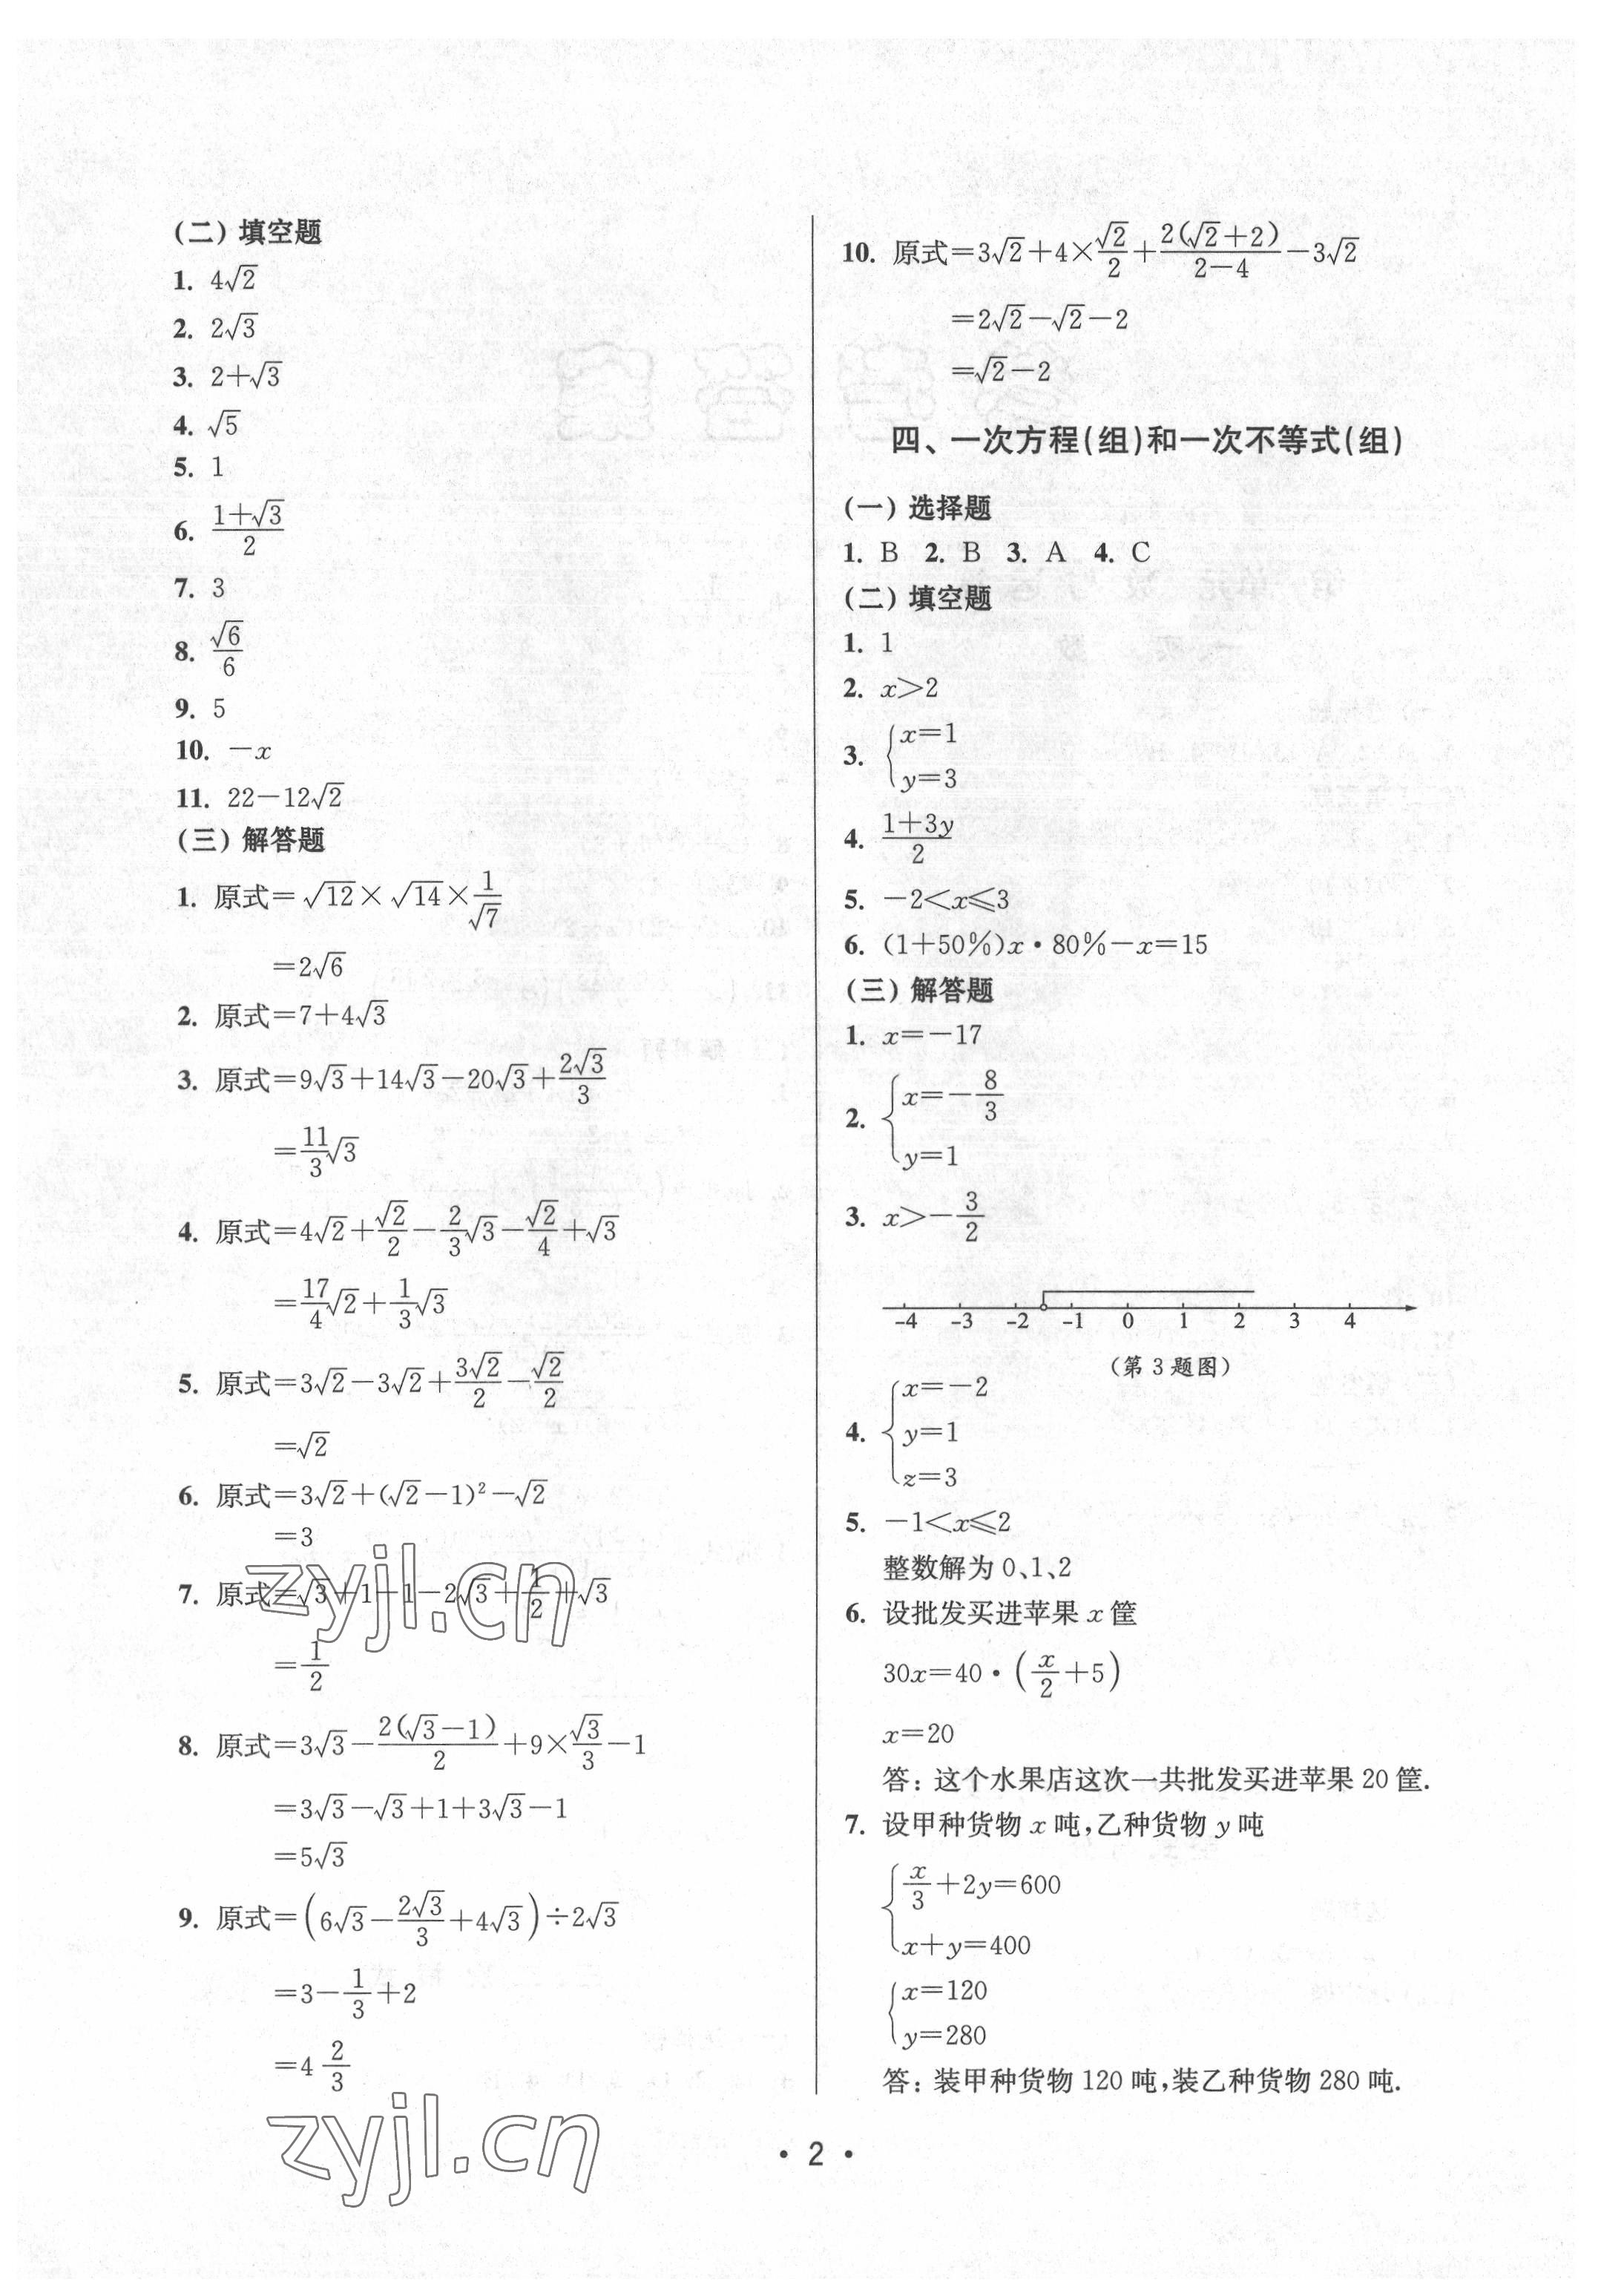 (二) 填空题
1. 4√2
2. 2√3
3. 2+√3
4. √5
5. 1
6. (1+√3)/2
7. 3
8. √6/6
9. 5
10. －x
11. 22－12√2
(三) 解答题
1. 原式＝√12×√14×1/√7
＝2√6
2. 原式＝7＋4√3
3. 原式＝9√3＋14√3－20√3＋2√3/3
＝11/3√3
4. 原式＝4√2＋√2/2－2/3√3－√2/4＋√3
＝17/4√2＋1/3√3
5. 原式＝3√2－3√2＋3√2/2－√2/2
＝√2
6. 原式＝3√2＋(√2－1)²－√2
＝3
7. 原式＝√3＋1－1－2√3＋1/2＋√3
＝1/2
8. 原式＝3√3－2(√3－1)/2＋9×√3/3－1
＝3√3－√3＋1＋3√3－1
＝5√3
9. 原式＝(6√3－2√3/3＋4√3)÷2√3
＝3－1/3＋2
＝4 2/3
10. 原式＝3√2＋4×√2/2＋2(√2＋2)/(2－4)－3√2
＝2√2－√2－2
＝√2－2
四、一次方程(组)和一次不等式(组)
(一) 选择题
1. B 2. B 3. A 4. C
(二) 填空题
1. 1
2. x＞2
3. {x＝1
y＝3
4. (1＋3y)/2
5. －2＜x≤3
6. (1＋50％)x・80％－x＝15
(三) 解答题
1. x＝－17
2. {x＝－8/3
y＝1
3. x＞－3/2
-4 -3 -2 -1 0 1 2 3 4
(第 3 题图)
4. {x＝－2
y＝1
z＝3
5. －1＜x≤2
整数解为 0、1、2
6. 设批发买进苹果 x 筐
30x＝40・(x/2＋5)
x＝20
答：这个水果店这次一共批发买进苹果 20 筐.
7. 设甲种货物 x 吨，乙种货物 y 吨
{x/3＋2y＝600
x＋y＝400
{x＝120
y＝280
答：装甲种货物 120 吨，装乙种货物 280 吨.
zyjl.cn
zyjl.cn
• 2 •